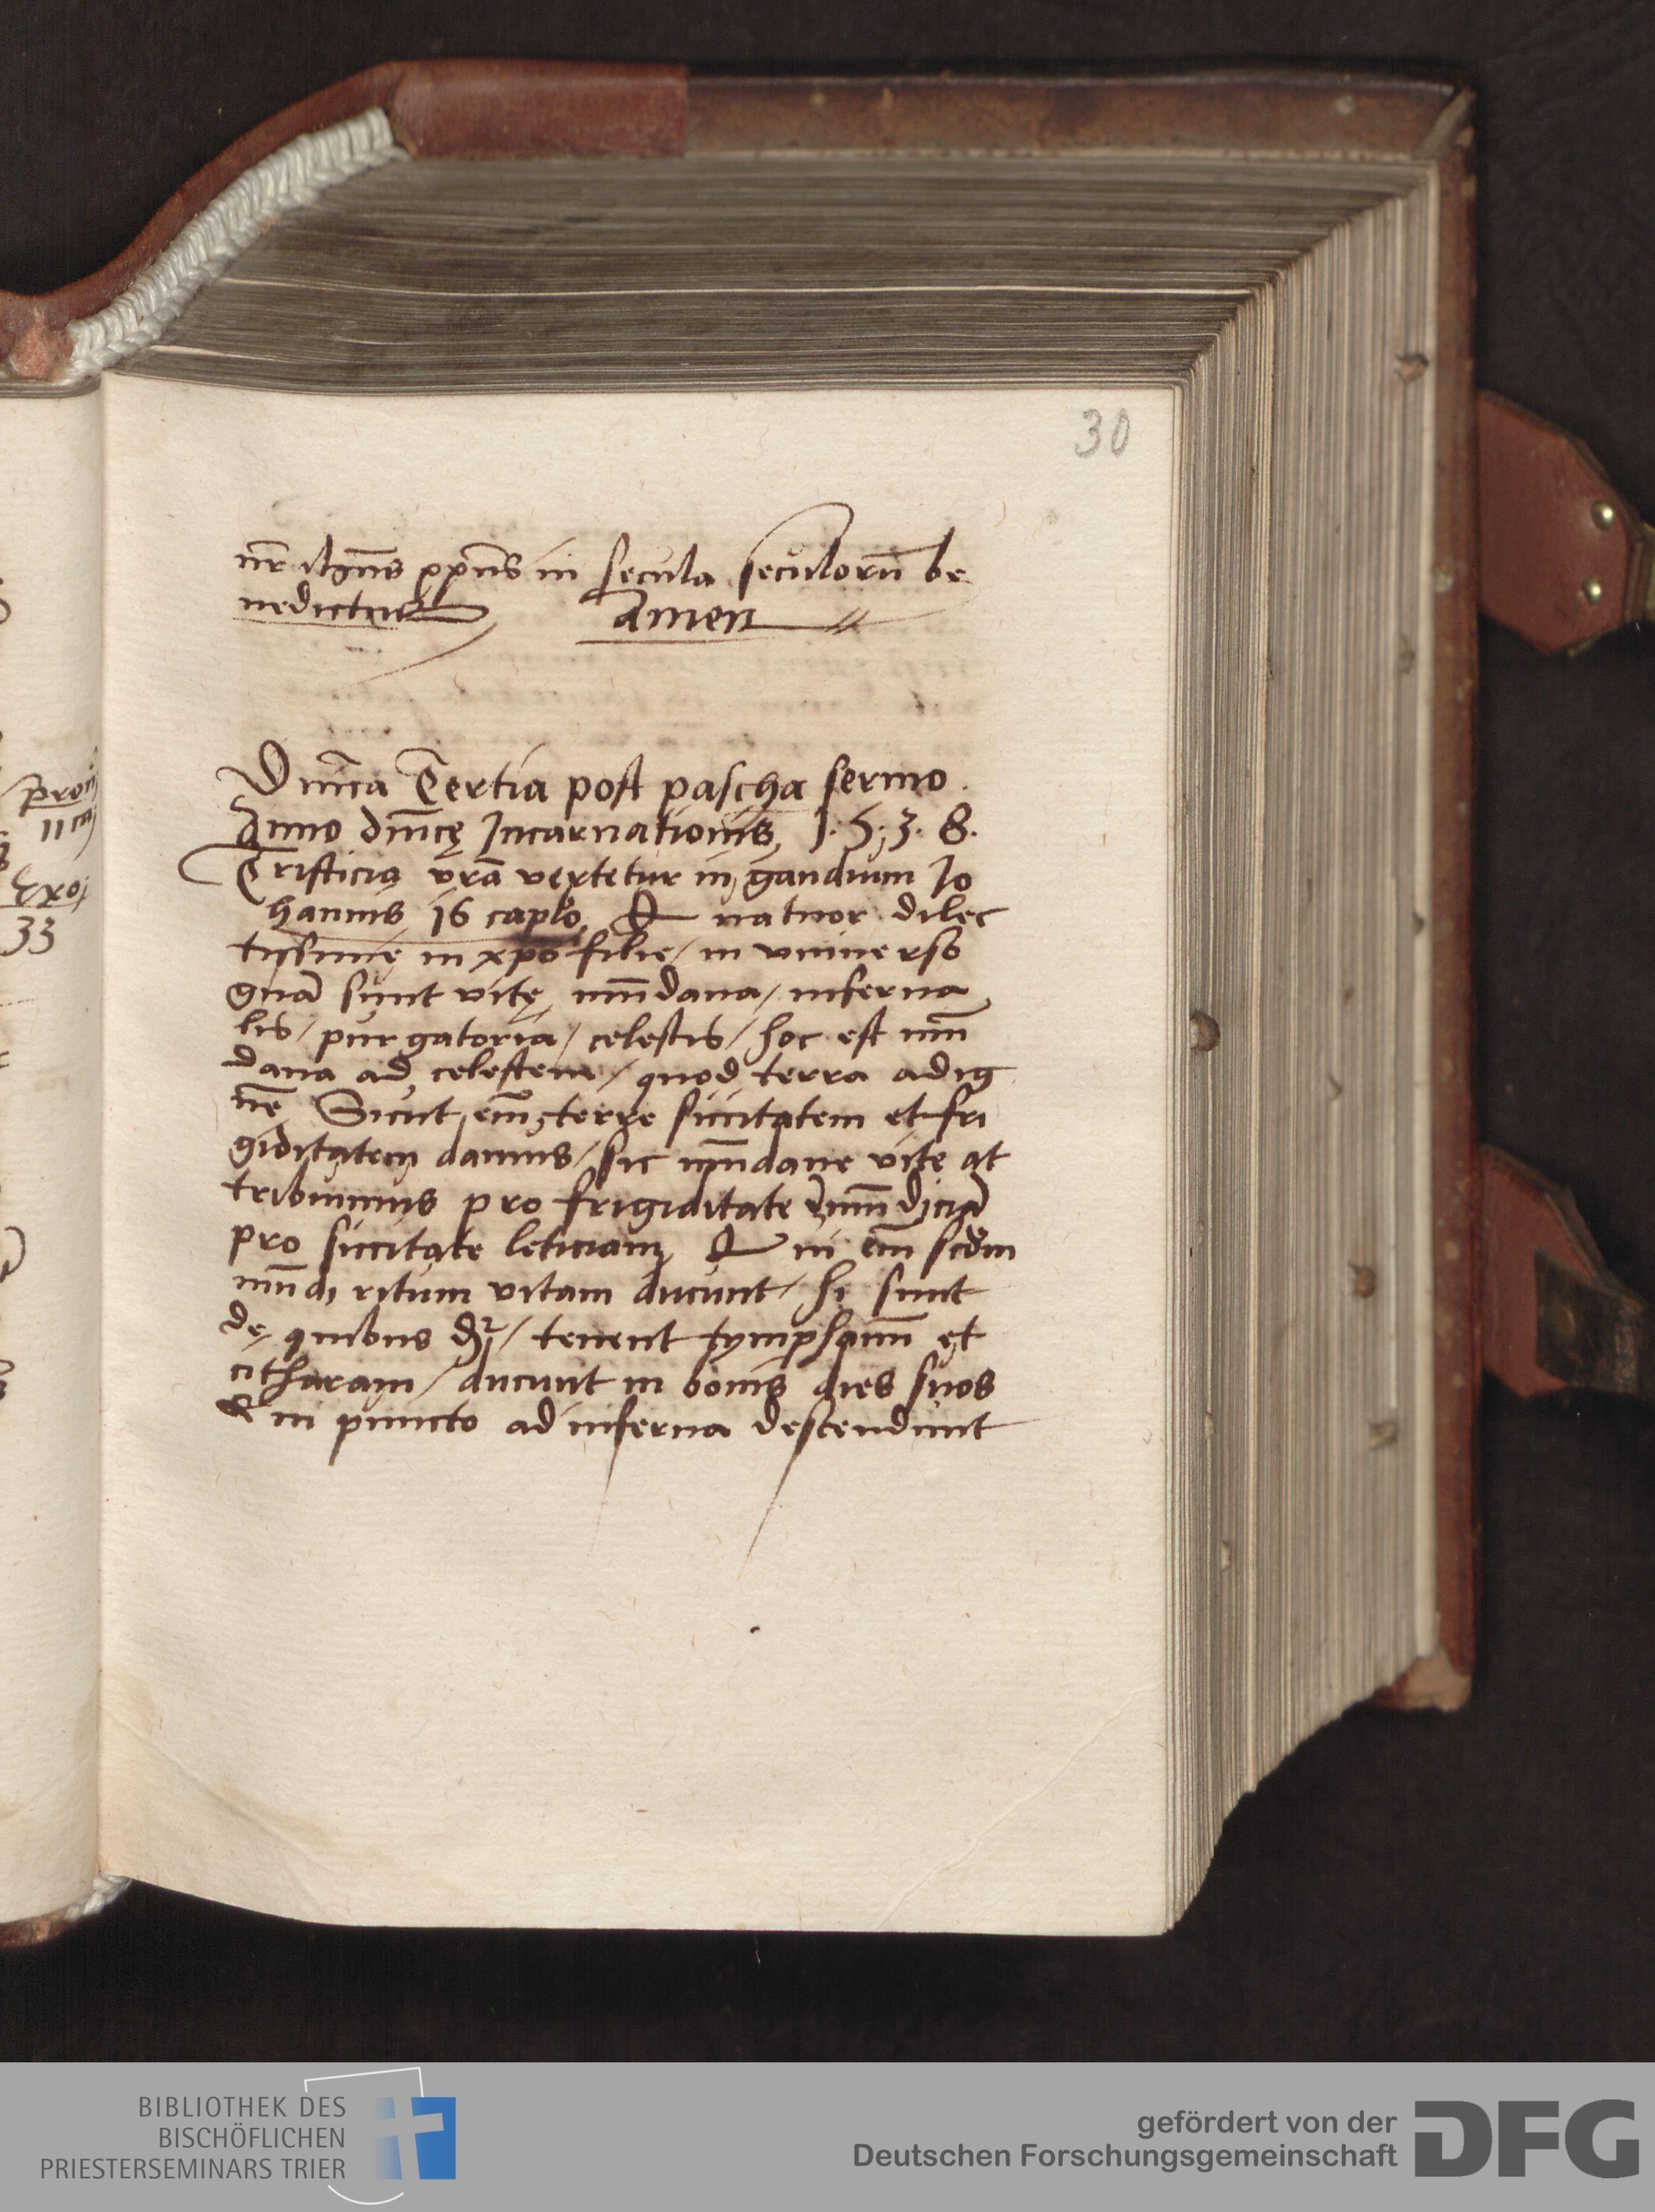 30
nr̄ ihūs xp̄us in secula seculorū be
nedictus Amen
Dnīca Tertia post pascha sermo.
Anno dnīcę Incarnationis, 1.5.3.8.
Tristicia vr̄a vertetur in gaudium Io
hannis 16 caplo, Quatuor dilec
tissimę in xpō filie / in universo
quā sunt vitę, mūdana / inferna
lis / purgatoria / celestis / hoc est mūn
dana ad celestem / quod terra ad ig
nē Sicut em̄ terre siccitatem et fri
giditatem damus / sic mūdane vite at
tribuimus pro frigiditate īmūdiciā
pro siccitate leticiam, Qui em̄ scdm
mūdi ritum vitam ducunt / hi sunt
de quibus dr̄ / tenent tympanū et
citharam / ducunt in bonis dies suos
& in puncto ad inferna descendunt
11 ca
33
BIBLIOTHEK DES
BISCHÖFLICHEN
PRIESTERSEMINARS TRIER
gefördert von der
Deutschen Forschungsgemeinschaft
DFG